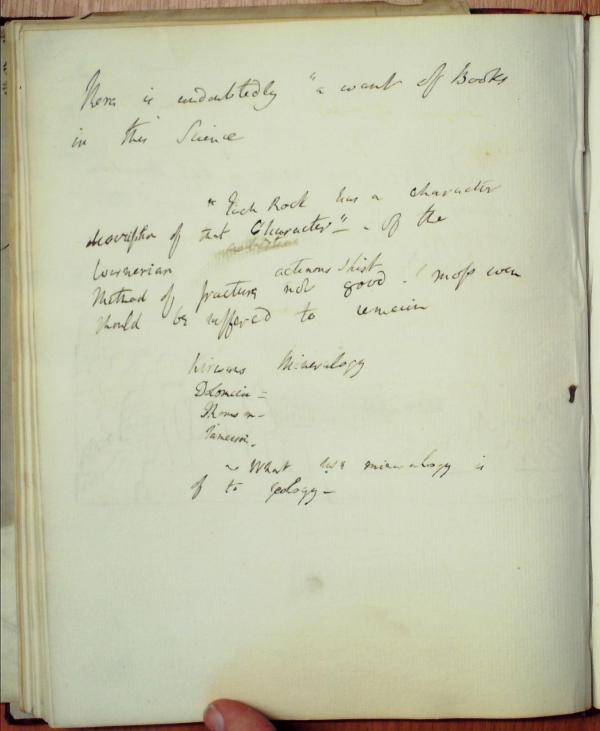 There is undoubtedly "a want of Books
in this Science
"Each Rock has a character
description of that Character" - of the
Wernerian actinous Shist
Method of fracture not good. moss even
should be suffered to remain
Kirwans Mineralogy
Dolomieu -
Thomson -
Jameson.
~ What use mineralogy is
of to geology -